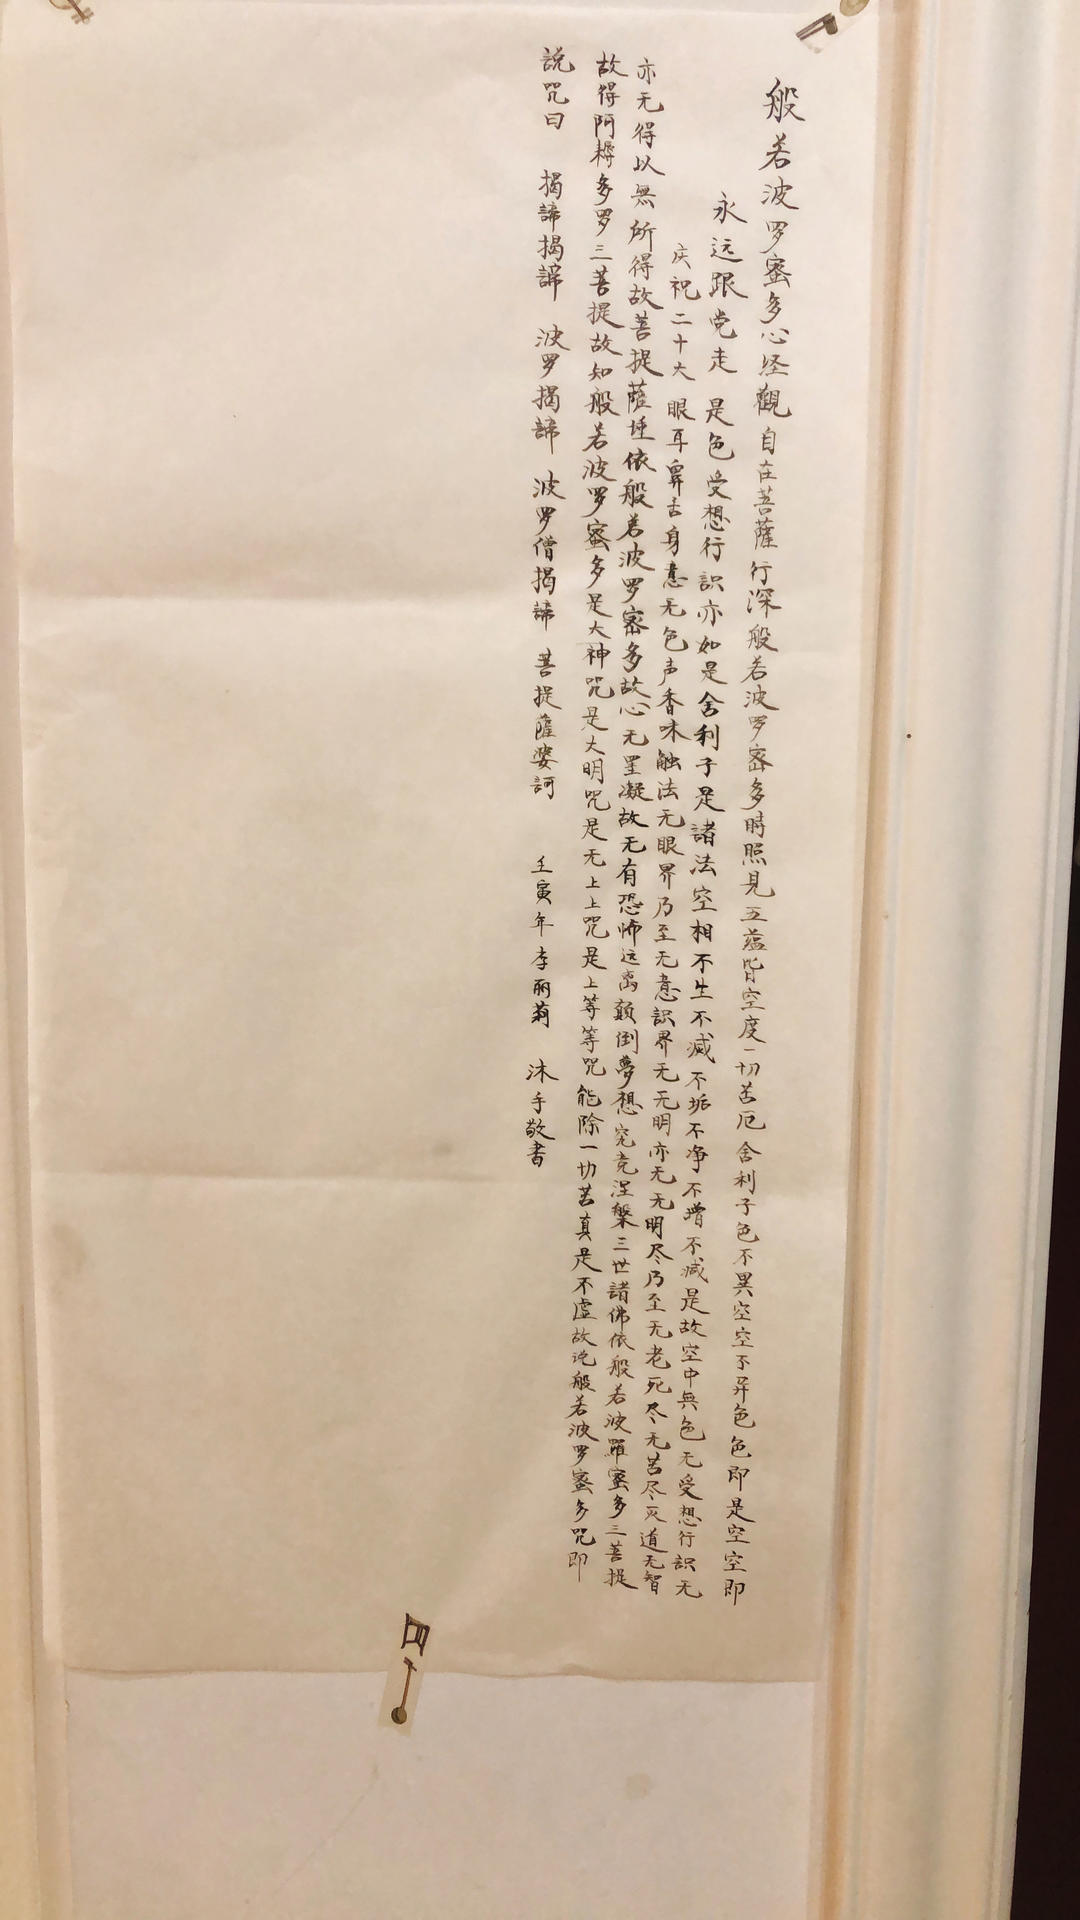 般若波罗蜜多心经觀自在菩薩行深般若波罗密多時照見五蕴皆空度一切苦厄舍利子色不異空空不异色色即是空空即
永远跟党走 是色受想行識亦如是舍利子是諸法空相不生不滅不垢不净不增不减是故空中無色无受想行識无
庆祝二十大 眼耳鼻舌身意无色声香味触法无眼界乃至无意識界无无明亦无无明尽乃至无老死尽无苦尽灭道无智
亦无得以無所得故菩提薩埵依般若波罗密多故心无罣凝故无有恐怖远离颠倒夢想究竟涅槃三世諸佛依般若波羅蜜多三菩提
故得阿耨多罗三菩提故知般若波罗蜜多是大神咒是大明咒是无上上咒是上等等咒能除一切苦真是不虚故说般若波罗蜜多咒即
説咒曰 揭諦揭諦 波罗揭諦 波罗僧揭諦 菩提薩婆訶 壬寅年李丽莉 沐手敬書